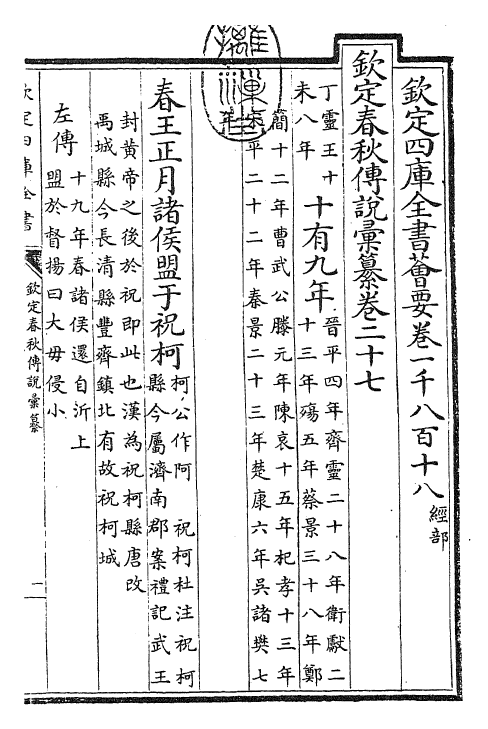 欽定四庫全書薈要卷一千八百十八 經部
欽定春秋傳說彙纂卷二十七
丁未 靈王十八年
十有九年 晉平四年齊靈二十八年衛獻二
十三年殤五年蔡景三十八年鄭
簡十二年曹武公滕元年陳哀十五年杞孝十三年
平二十二年秦景二十三年楚康六年吳諸樊七
年
春王正月諸侯盟于祝柯 柯公作阿 祝柯杜注祝柯
縣今屬濟南郡案禮記武王
封黄帝之後於祝即此也漢為祝柯縣唐改
禹城縣今長清縣豐齊鎮北有故祝柯城
左傳 十九年春諸侯還自沂上
盟於督揚曰大毋侵小
欽定四庫全書
欽定春秋傳說彙纂
一